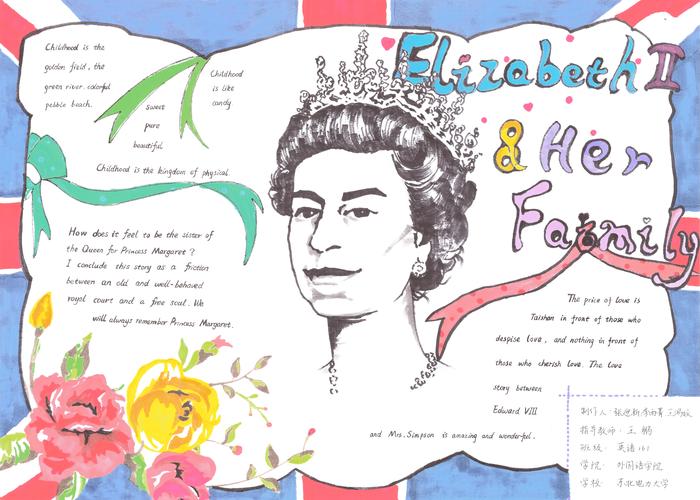 Elizabeth II
& Her
Family
Childhood is the
golden field, the
green river. colorful
pebble beach.
Childhood
is like
candy.
sweet
pure
beautiful
Childhood is the kingdom of physical.
How does it feel to be the sister of
the Queen for Princess Margaret ?
I conclude this story as a friction
between an old and well-behaved
royal court and a free soul. We
will always remember Princess Margaret.
The price of love is
Taishan in front of those who
despise love, and nothing in front of
those who cherish love. The love
story between
Edward VIII
and Mrs.Simpson is amazing and wonderful.
制作人:
指导教师: 王鹏
班级: 英语161
学院: 外国语学院
学校: 东北电力大学